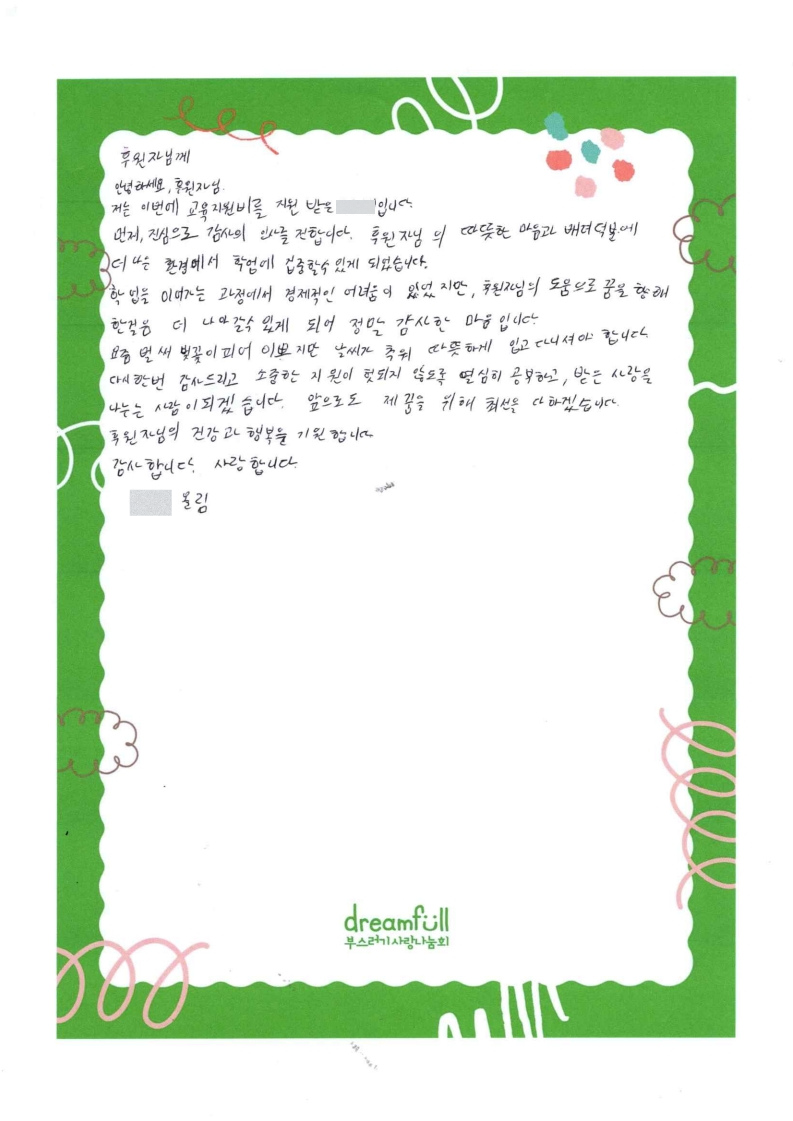 후원자님께
안녕하세요, 후원자님.
저는 이번에 교육지원비를 지원 받은 입니다.
먼저, 진심으로 감사의 인사를 전합니다. 후원자님의 따뜻한 마음과 배려 덕분에
더 나은 환경에서 학업에 집중할수 있게 되었습니다.
학업을 이어가는 과정에서 경제적인 어려움이 있었지만, 후원자님의 도움으로 꿈을 향해
한걸음 더 나아갈수 있게 되어 정말 감사한 마음입니다.
요즘 벌써 벚꽃이 피어 이쁘지만 날씨가 추워 따뜻하게 입고 다니셔야 합니다.
다시한번 감사드리고 소중한 지원이 헛되지 않도록 열심히 공부하고, 받은 사랑을
나누는 사람이 되겠습니다. 앞으로도 제 꿈을 위해 최선을 다하겠습니다.
후원자님의 건강과 행복을 기원합니다
감사합니다. 사랑합니다.
올림
dreamfull
부스러기사랑나눔회